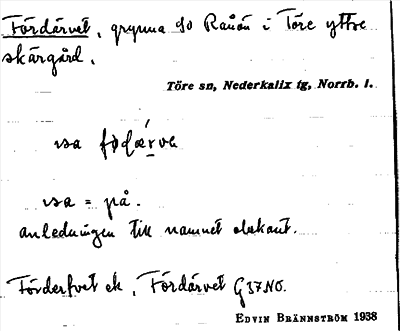 Fördärvet, grynna SO Rånön i Töre yttre
skärgård.
Töre sn, Nederkalix tg, Norrb. l.
va
va = på.
anledningen till namnet obekant.
Förderfvet ek, Fördärvet G 37 NO.
EDVIN BRÄNNSTRÖM 1938